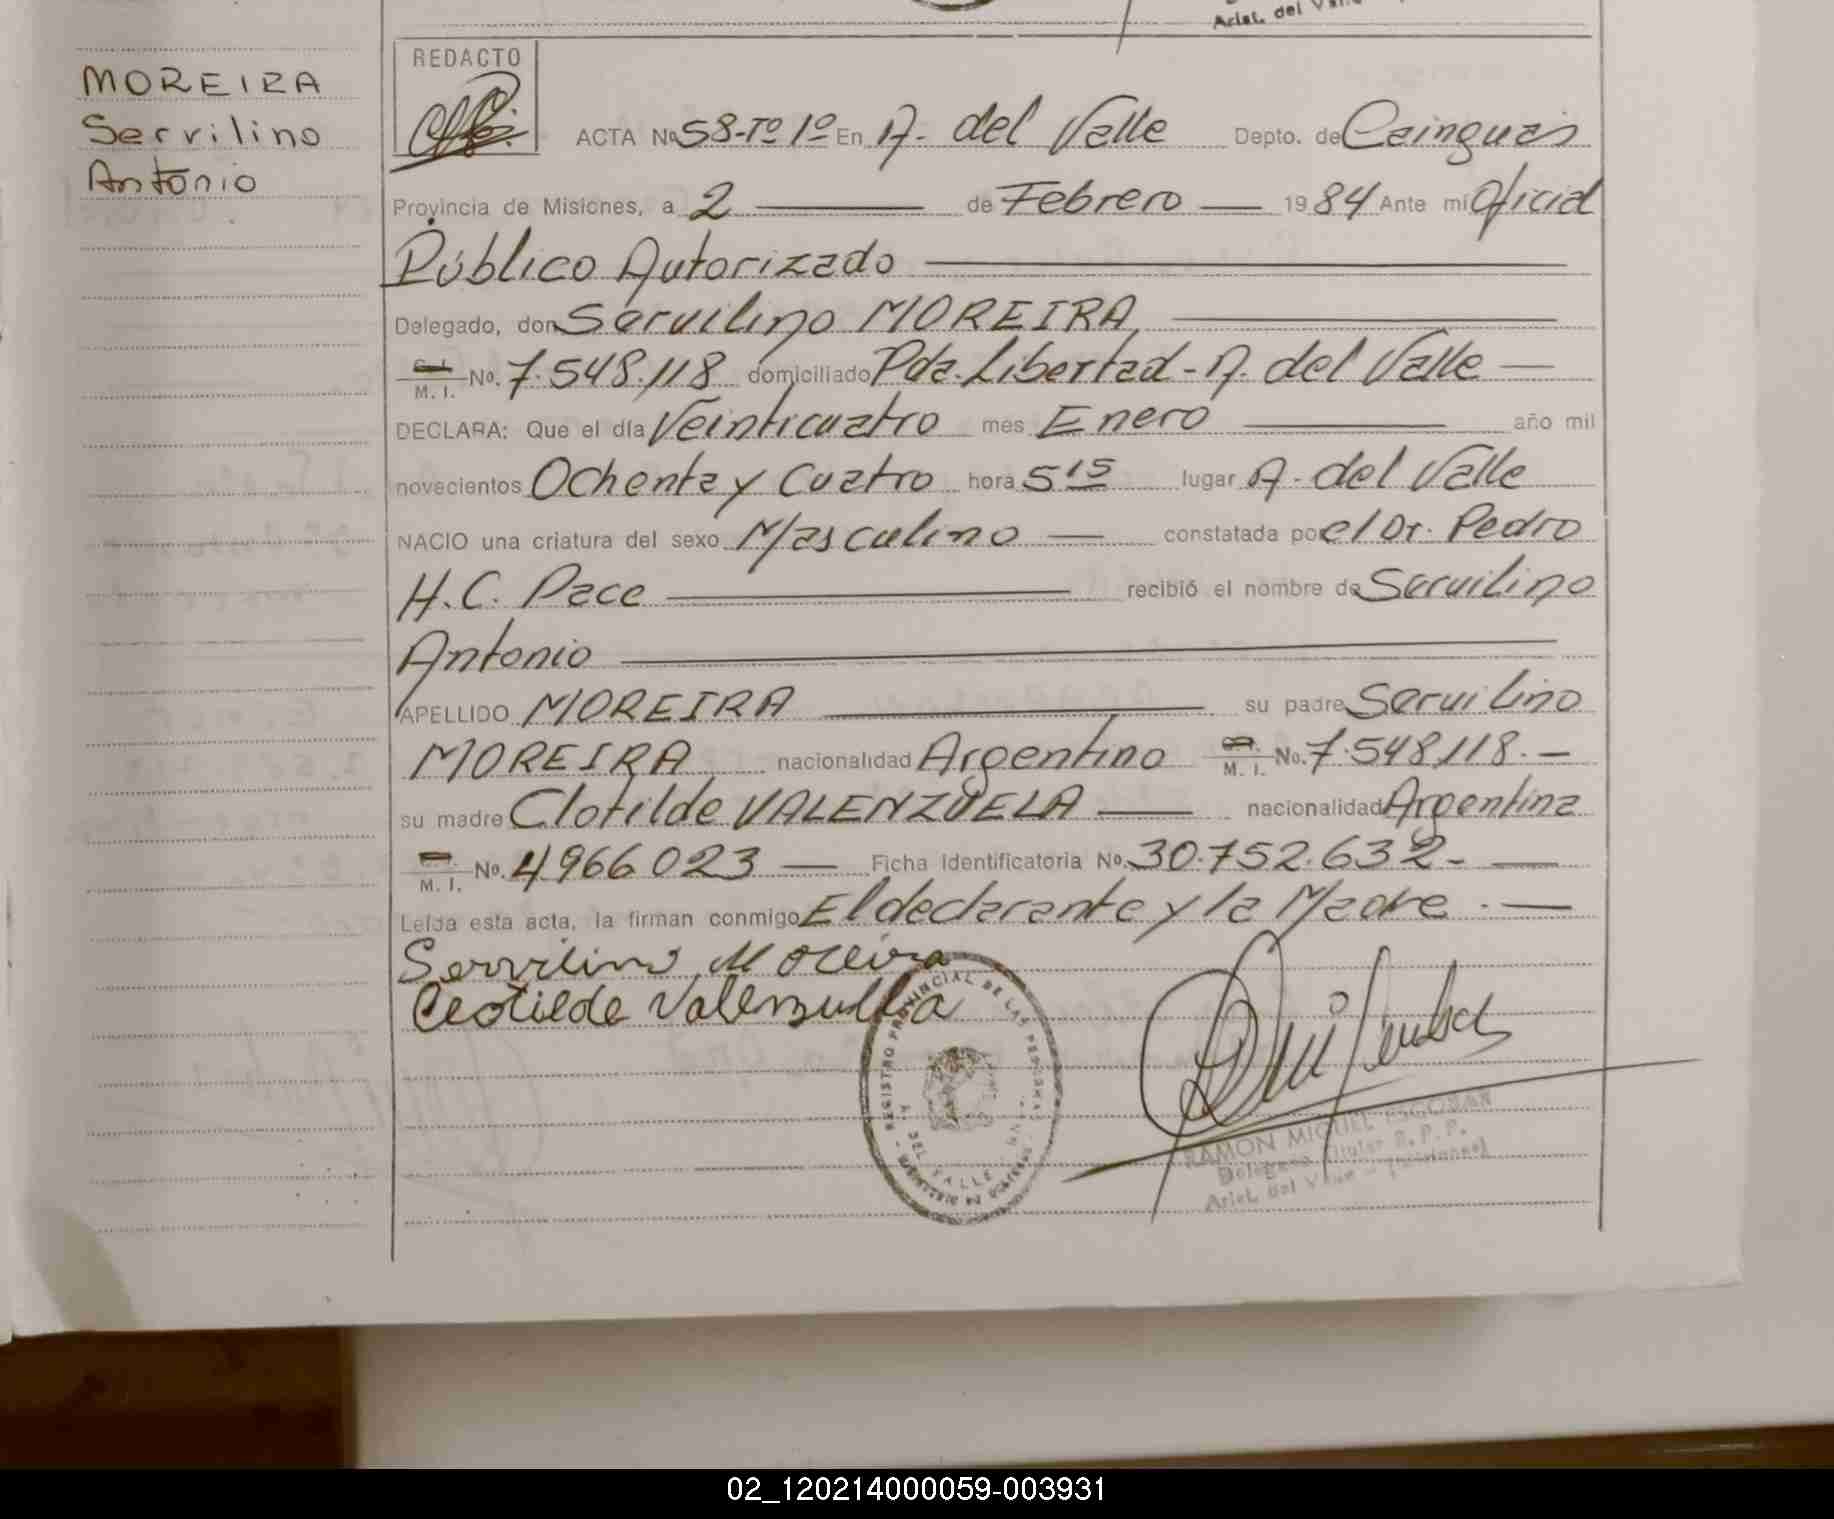 Arist. del Valle
MOREIRA
Servilino
Antonio
REDACTO
ACTA No 58-Tº 1º En A. del Valle Depto. de Cainguas
Provincia de Misiones, a 2 de Febrero 1984 Ante mi Oficial
Público Autorizado
Delegado, don Servilino MOREIRA
C. I. / M. I. No. 7.548.118 domiciliado Pda. Libertad - A. del Valle
DECLARA: Que el día Veinticuatro mes Enero año mil
novecientos Ochenta y Cuatro hora 5 15 lugar A. del Valle
NACIO una criatura del sexo Masculino constatada por el Dr. Pedro
H.C. Pace recibió el nombre de Servilino
Antonio
APELLIDO MOREIRA su padre Servilino
MOREIRA nacionalidad Argentino M. I. No. 7.548.118.-
su madre Clotilde VALENZUELA nacionalidad Argentina
M. I. No. 4966023 Ficha Identificatoria No. 30.752.632-
Leída esta acta, la firman conmigo El declarante y la Madre.
Servilino Moreira
Cleotilde Valenzuella
REGISTRO PROVINCIAL DE LAS PERSONAS
DEL VALLE
RAMON MIGUEL ESCOBAR
Delegado Titular R. P. P.
Arist. del Valle - (Misiones)
02_120214000059-003931